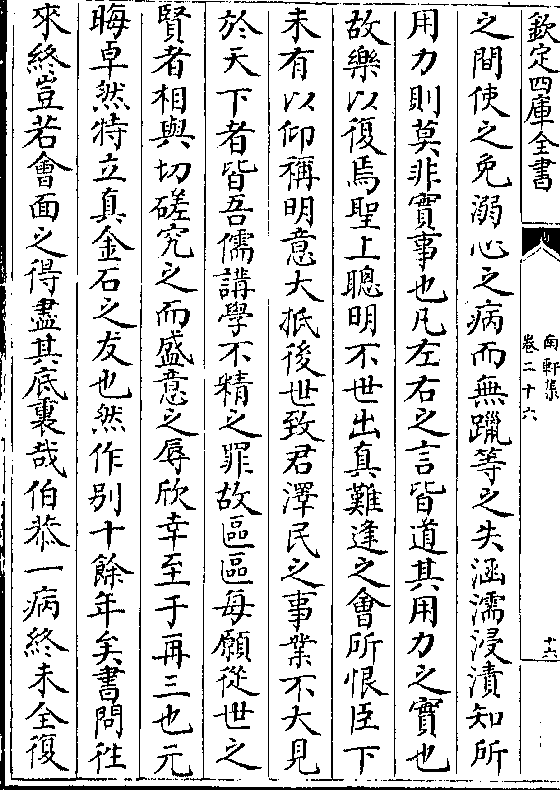 欽定四庫全書
南軒集
卷二十六
十六
之間使之免溺心之病而無躐等之失涵濡浸漬知所
用力則莫非實事也凡左右之言皆道其用力之實也
故樂以復焉聖上聰明不世出真難逢之會所恨臣下
未有以仰稱明意大抵後世致君澤民之事業不大見
於天下者皆吾儒講學不精之罪故區區每願從世之
賢者相與切磋究之而盛意之辱欣幸至于再三也元
晦卓然特立真金石之友也然作别十餘年矣書問往
來終豈若㑹面之得盡其底裏哉伯恭一病終未全復